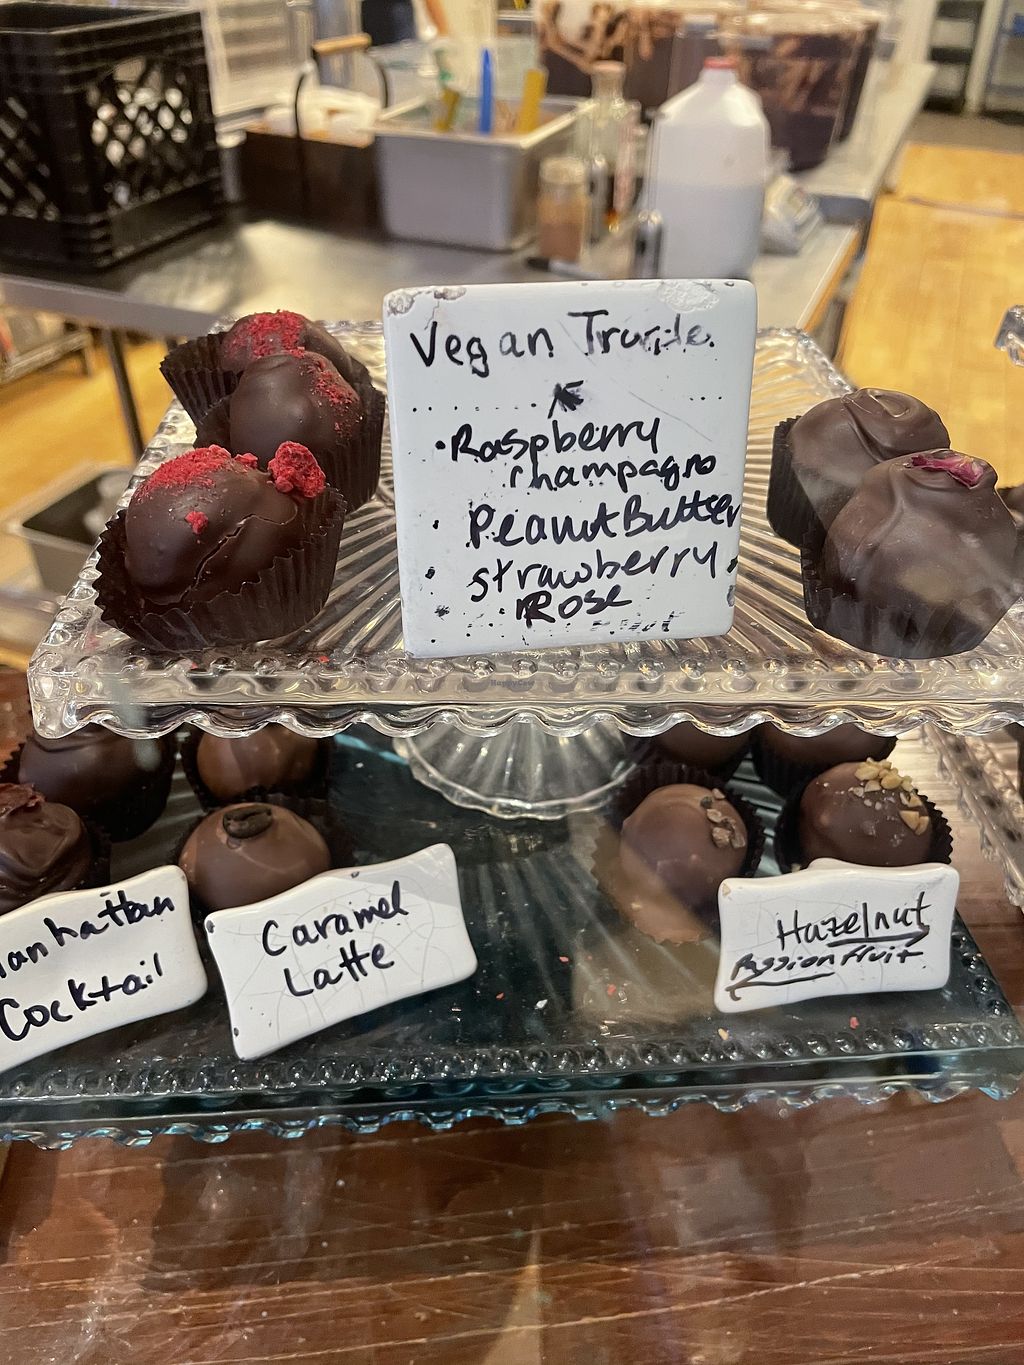 Vegan Truffle
Raspberry
Champagne
Peanut Butter
strawberry
Rose
HappyCow
Manhattan
Cocktail
Caramel
Latte
Hazelnut
Passion fruit